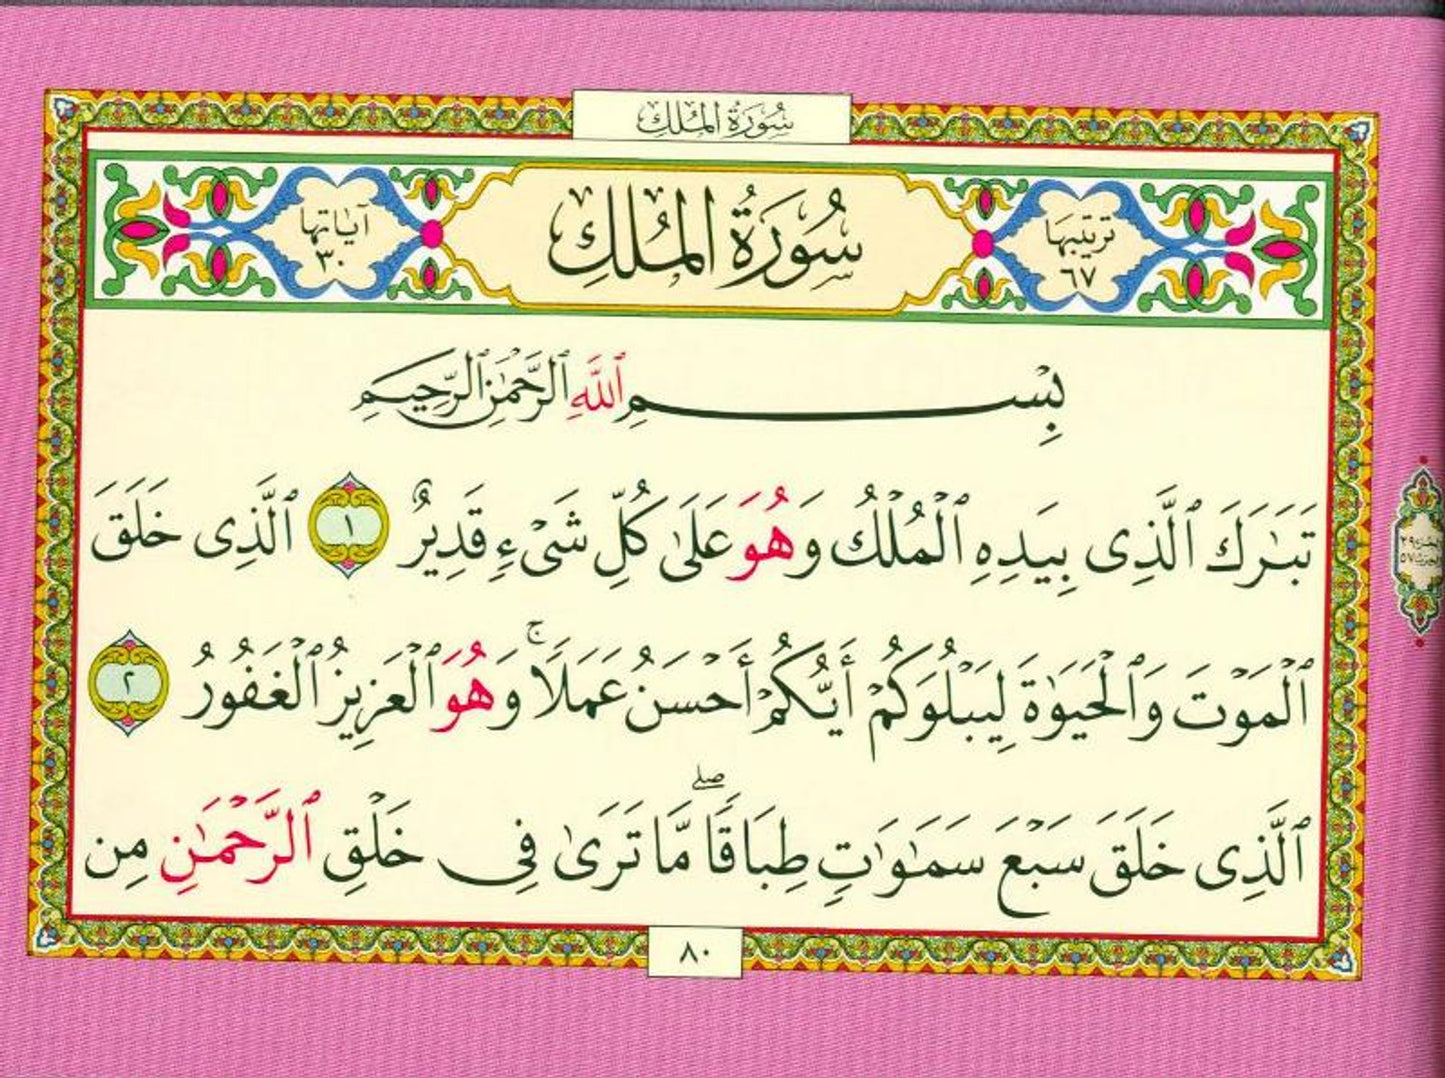 سُورَةُ المُلكِ
ترتيبها ٦٧
سُورَةُ المُلكِ
آياتها ٣٠
بِسْمِ ٱللَّهِ ٱلرَّحْمَٰنِ ٱلرَّحِيمِ
تَبَٰرَكَ ٱلَّذِى بِيَدِهِ ٱلْمُلْكُ وَهُوَ عَلَىٰ كُلِّ شَىْءٍ قَدِيرٌ ١ ٱلَّذِى خَلَقَ
ٱلْمَوْتَ وَٱلْحَيَوٰةَ لِيَبْلُوَكُمْ أَيُّكُمْ أَحْسَنُ عَمَلًا ۚ وَهُوَ ٱلْعَزِيزُ ٱلْغَفُورُ ٢
ٱلَّذِى خَلَقَ سَبْعَ سَمَٰوَٰتٍ طِبَاقًا ۖ مَّا تَرَىٰ فِى خَلْقِ ٱلرَّحْمَٰنِ مِن
٨٠
الجزء ٢٩
الحزب ٥٧